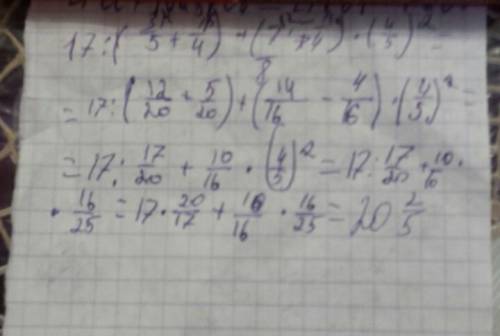 17:(3/5 + 1/4) + ( ) · (4/5)² =
= 17:(12/20 + 5/20) + (14/16 - 4/16) · (4/5)² =
= 17: 17/20 + 10/16 · (4/5)² = 17: 17/20 + 10/16 ·
· 16/25 = 17 · 20/17 + 10/16 · 16/25 = 20 2/5